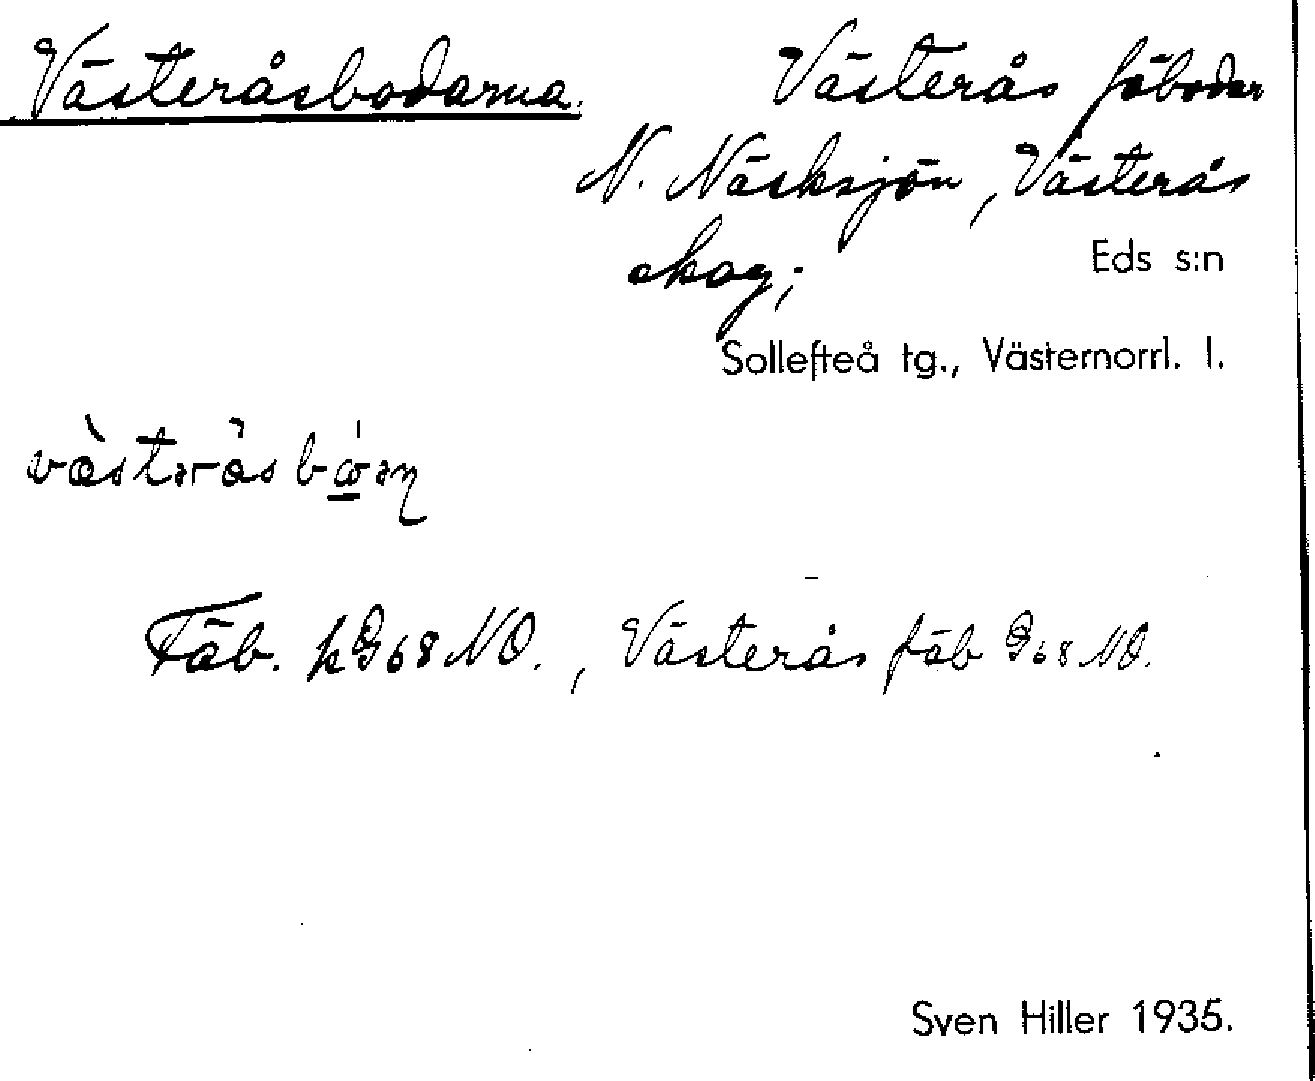 Västeråsbodarna. Västerås fäbodar
N. Näcksjön, Västerås
skog; Eds s:n
Sollefteå tg., Västernorrl. l.
Fäb. på G68 NO., Västerås fäb G68 NO.
Sven Hiller 1935.